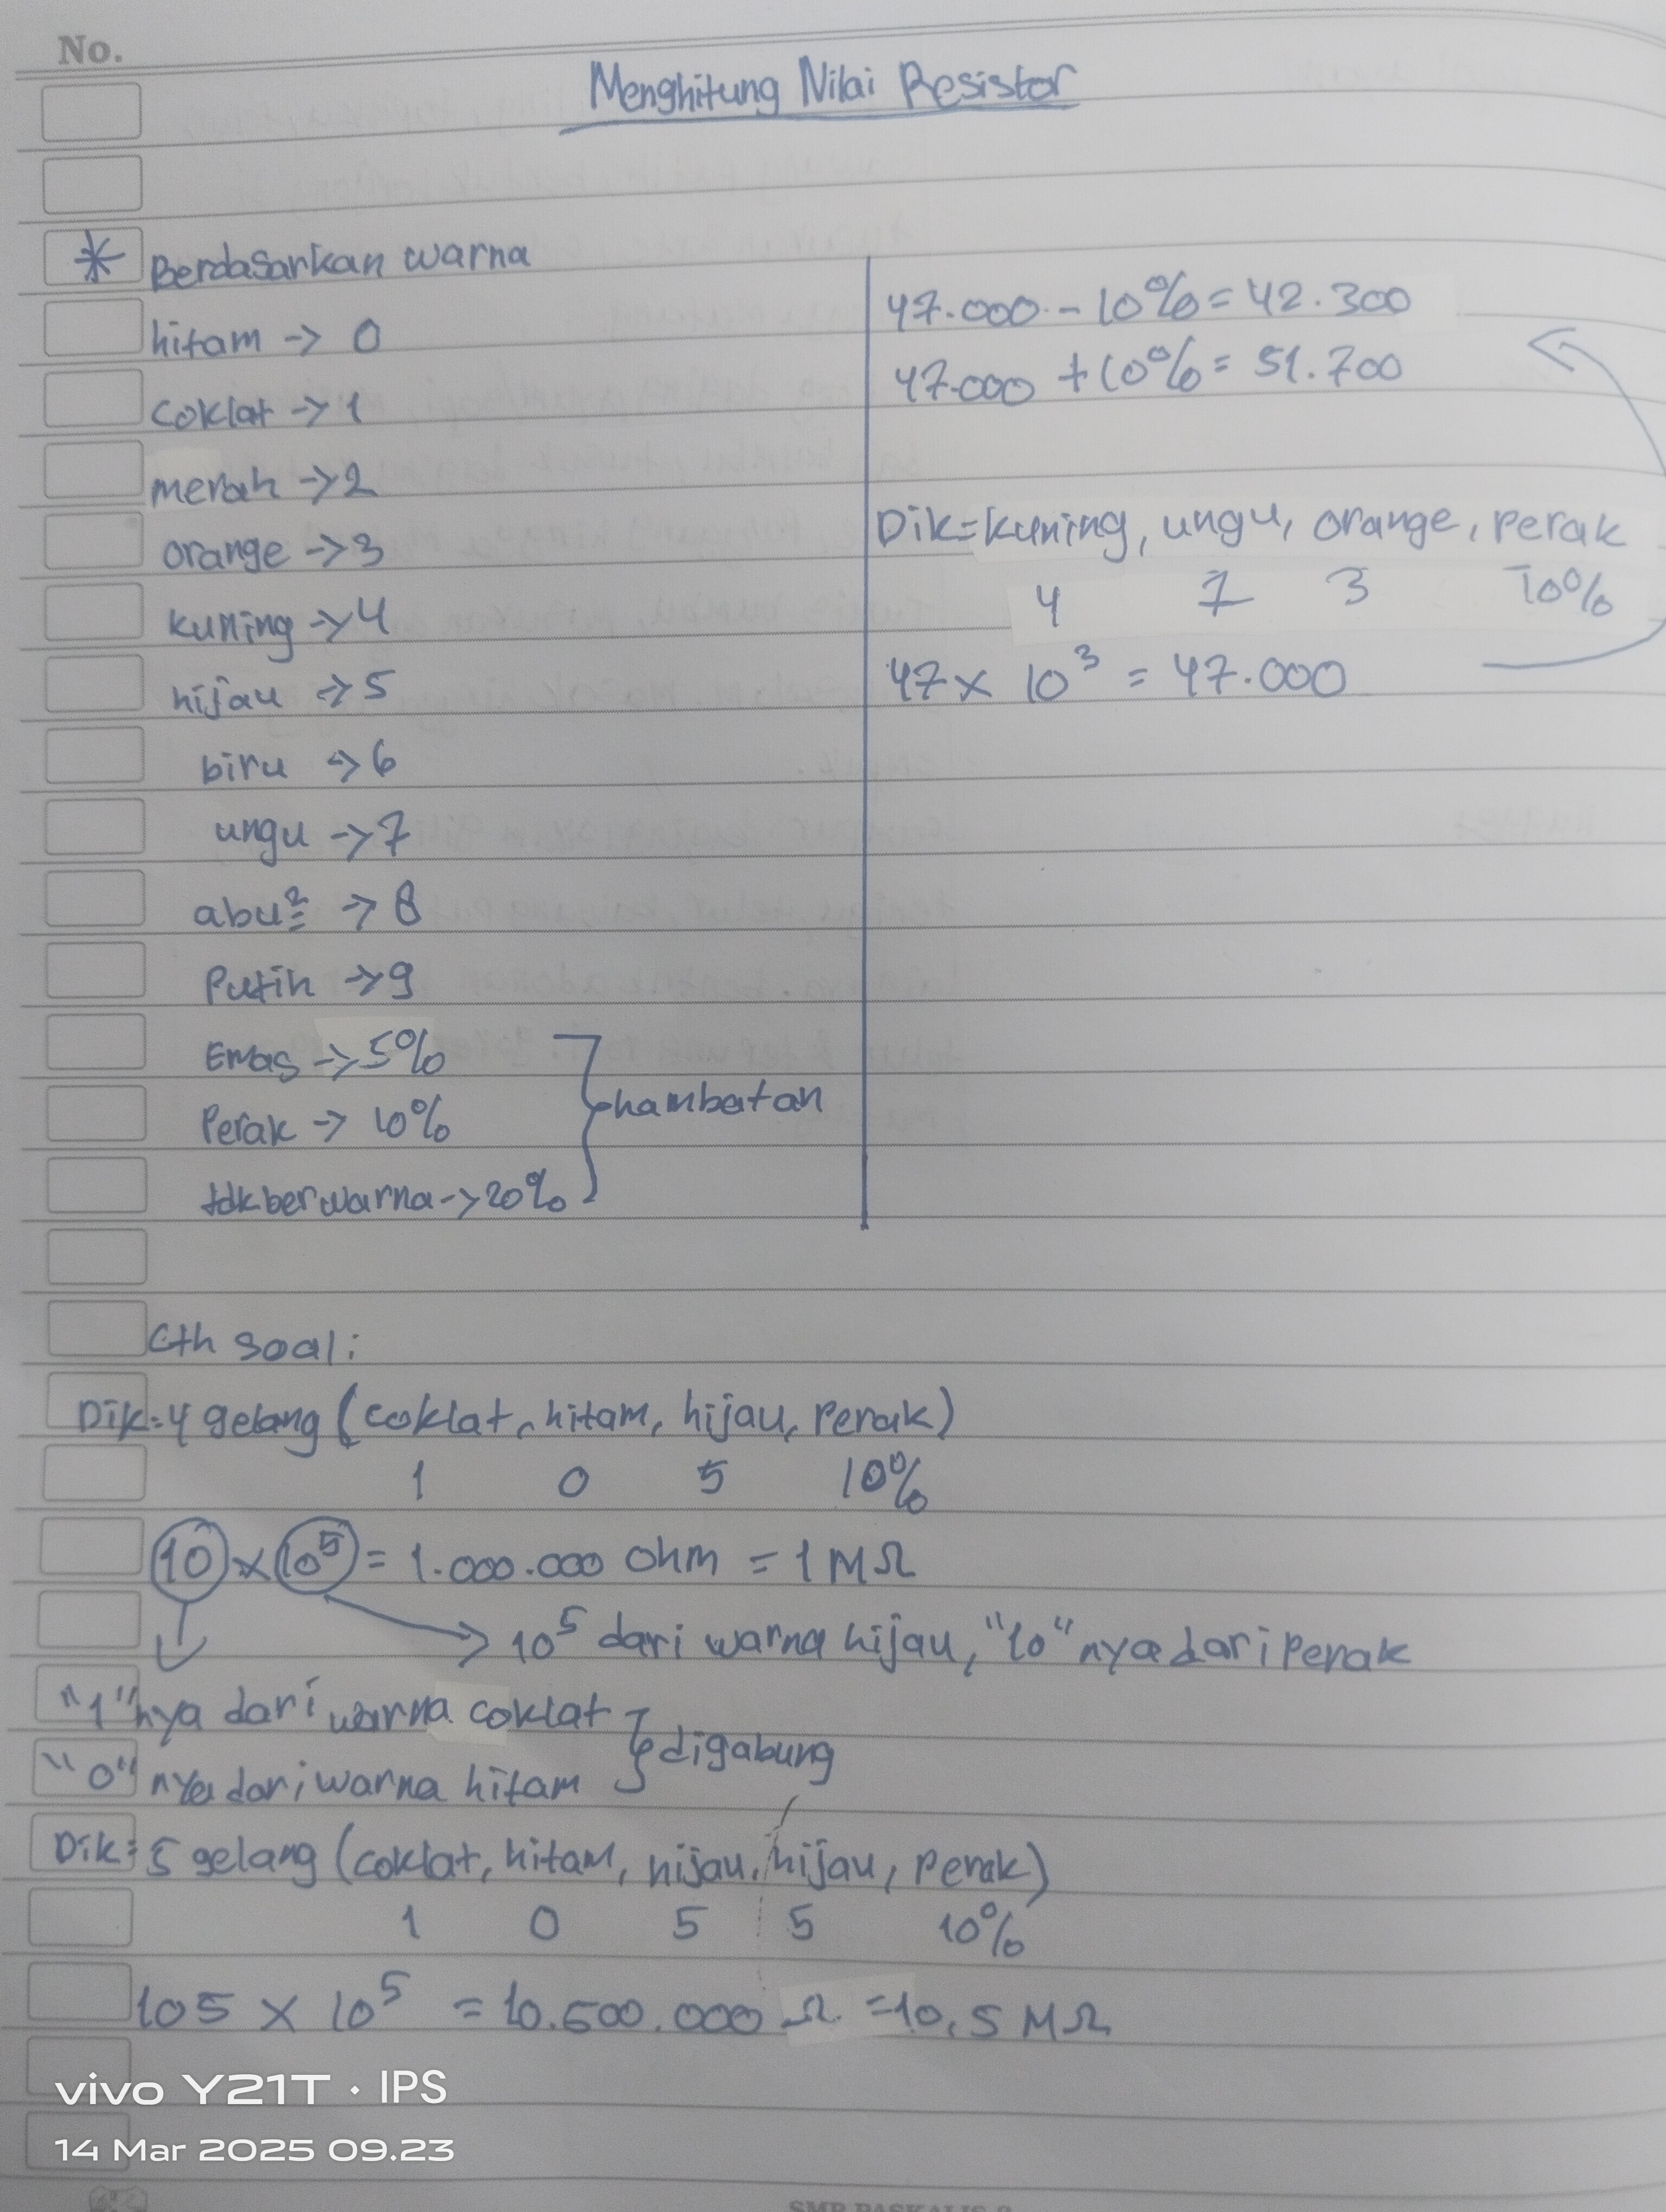 No.
Menghitung Nilai Resistor
* Berdasarkan warna
hitam -> 0
coklat -> 1
merah -> 2
orange -> 3
kuning -> 4
hijau -> 5
biru -> 6
ungu -> 7
abu² -> 8
Putih -> 9
Emas -> 5%
Perak -> 10%
tdk berwarna -> 20%
hambatan
47.000 - 10% = 42.300
47.000 + 10% = 51.700
Dik = kuning, ungu, orange, perak
4 7 3 10%
47 x 10³ = 47.000
Cth soal :
Dik = 4 gelang (coklat, hitam, hijau, perak)
1 0 5 10%
10 x 10⁵ = 1.000.000 Ohm = 1 MΩ
-> 10⁵ dari warna hijau, "10" nya dari perak
"1" nya dari warna coklat
"0" nya dari warna hitam
digabung
Dik = 5 gelang (coklat, hitam, hijau, hijau, perak)
1 0 5 5 10%
105 x 10⁵ = 10.500.000 Ω = 10,5 MΩ
vivo Y21T · IPS
14 Mar 2025 09.23